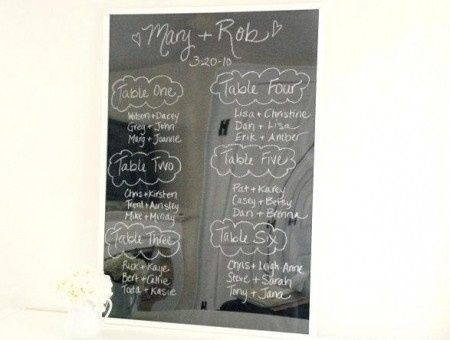 ♡ Mary + Rob ♡
3·20·10
Table One
Wilson + Dacey
Greg + John
Marg + Joanne
Table Two
Chris + Kirsten
Trent + Ainsley
Mike + Mindy
Table Three
Rick + Kaye
Bert + Callie
Todd + Kasie
Table Four
Lisa + Christine
Dan + Lisa
Erik + Amber
Table Five
Pat + Karey
Casey + Betsy
Dan + Brenna
Table Six
Chris + Leigh Anne
Steve + Sarah
Tony + Jana